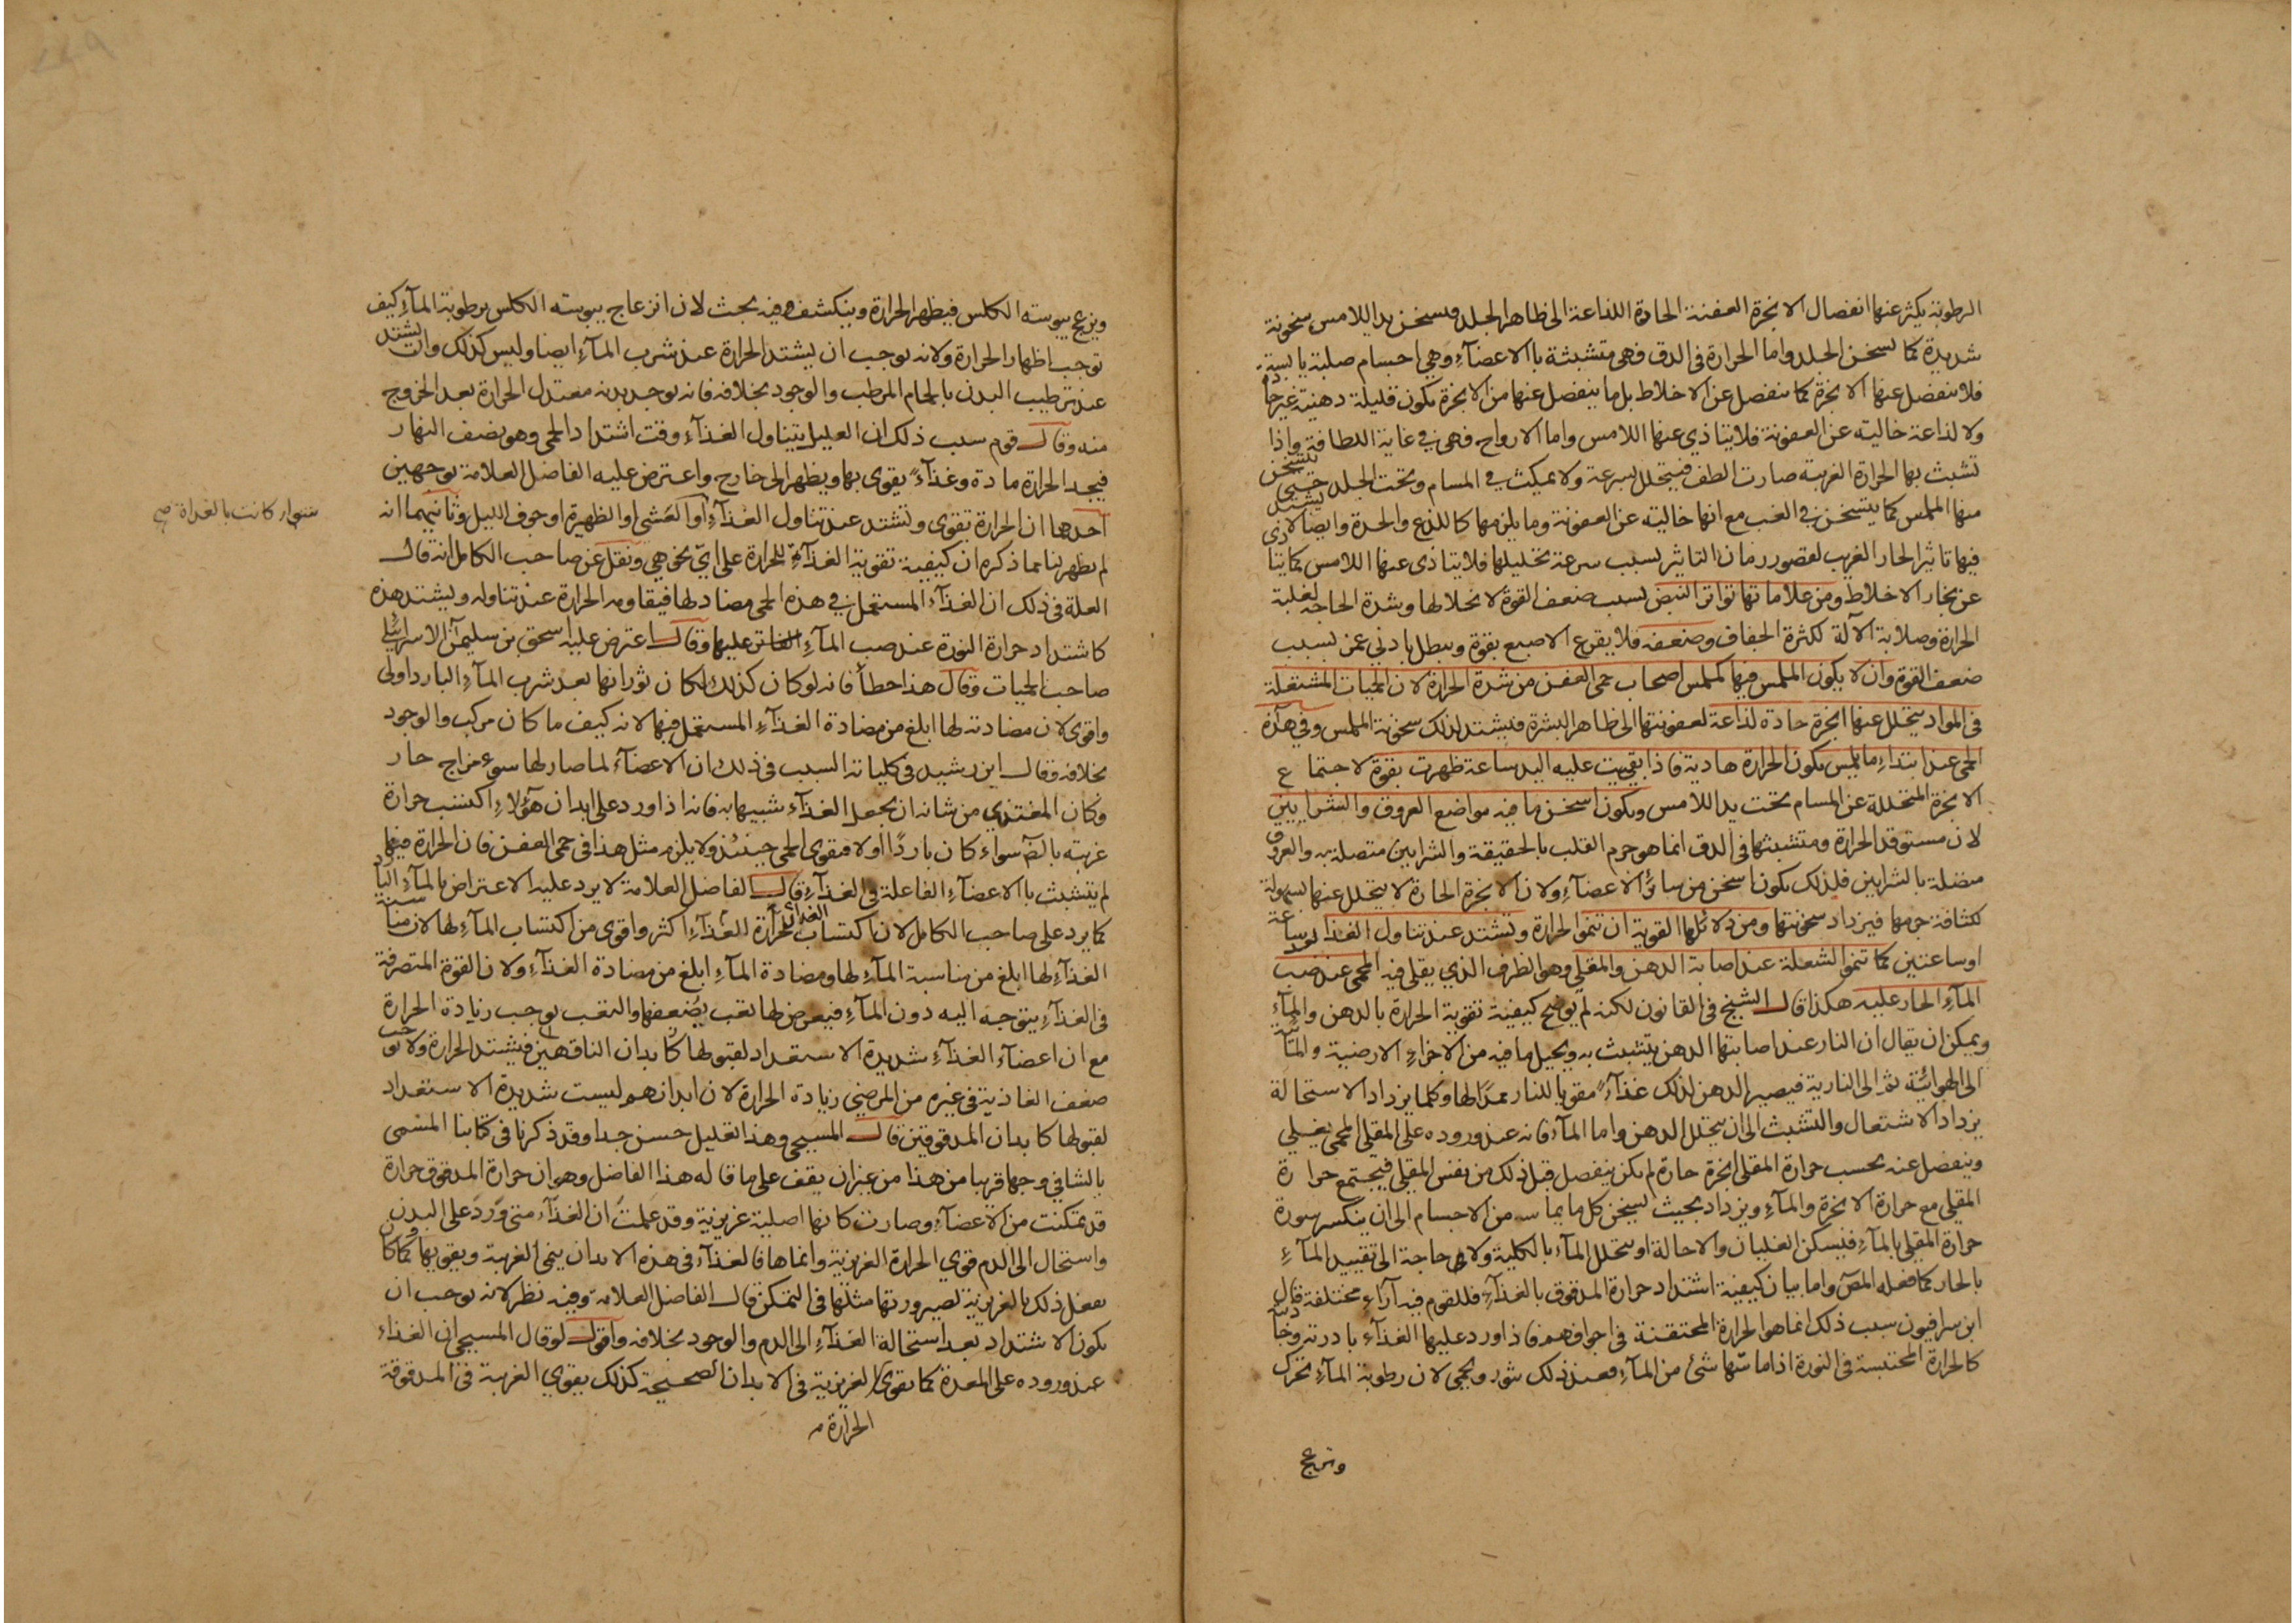 الرطوبة يكثر عنها انفصال الابخرة العفنة الحادة اللذاعة الى ظاهر الجلد فيسخن يد اللامس سخونة
شديدة كما تسخن الجلد واما الحرارة فى الدق فهى متشبثة باالاعضآء وهى اجسام صلبة يابسة
فلا ينفصل عنها الابخرة كما ينفصل عن الاخلاط بل ما ينفصل عنها من الابخرة يكون قليلة دهنية غير حادة
ولا لذاعة خالية عن العفونة فلا يتاذى عنها اللامس واما الارواح فهى فى غاية اللطافة واذا
تشبث بها الحرارة الغريبة صارت الطف فيتحلل بسرعة ولا يمكث فى المسام وتحت الجلد حتى يتسخن
منها الملمس كما يتسخن فى الغب مع انها خالية عن العفونة وما يلزمها كاللذع والحدة وايضا لا يشتد
فيها تاثير الحار الغريب لقصور زمان التاثير بسبب سرعة تحليلها فلا يتاذى عنها اللامس كما يتاذى
عن بخار الاخلاط ومن علاماتها تواتر النبض بسبب ضعف القوة لانحلالها وشدة الحاجة لغلبة
الحرارة وصلابة الآلة لكثرة الجفاف وضعفه فلا يقرع الاصبع بقوة ويبطل بادنى غمز بسبب
ضعف القوة وان لا يكون الملمس فيها كملمس اصحاب حمى العفن من شدة الحرارة لان الحميات المشتعلة
فى المواد يتحلل عنها ابخرة حادة لذاعة لعفونتها الى ظاهر البشرة فيشتد لذلك سخونة الملمس وفى هذه
الحمى عند ابتداء ما يلمس يكون الحرارة هادية فاذا بقيت عليه اليد ساعة ظهرت بقوة لاجتماع
الابخرة المتحللة عن المسام تحت يد اللامس ويكون اسخن ما فيه مواضع العروق والشرايين
لان مستوقد الحرارة ومتشبثها فى الدق انما هو جرم القلب بالحقيقة والشرايين متصلة به والعروق
متصلة بالشرايين فلذلك يكون اسخن من سائر الاعضآء ولان الابخرة الحارة لا يتحلل عنها بسهولة
لكثافة جرمها فيزداد سخونتها ومن دلائلها القوية ان تنمو الحرارة وتشتد عند تناول الغذا بعد ساعة
اوساعتين كما تنمو الشعلة عند اصابة الدهن والمقلى وهو الظرف الذي يقلى فيه المحمى عند صب
المآء الحار عليه هكذا قال الشيخ فى القانون لكنه لم يوضح كيفية تقوية الحرارة بالدهن والمآء
ويمكن ان يقال ان النار عند اصابتها الدهن يتشبث به ويحيل ما فيه من الاجزاء الارضية والمآئية
الى الهوائية ثم الى النارية فيصير الدهن لذلك غذآء مقويا للنار ممدًا لها وكلما يزداد الاستحالة
يزداد الاشتعال والتشبث الى ان يتحلل الدهن واما المآء فانه عند وروده على المقلى المحمى يغلى
وينفصل عنه بحسب حرارة المقلى ابخرة حارة لم يكن ينفصل قبل ذلك من نفس المقلى فيجتمع حرارة
المقلى مع حرارة الابخرة والمآء ويزداد بحيث يسخن كل ما يماسه من الاجسام الى ان ينكسر سورة
حرارة المقلى بالمآء فيسكن الغليان والاحالة او يتحلل المآء بالكلية ولا حاجة الى تقييد المآء
بالحار كما فعله المص واما بيان كيفية اشتداد حرارة المدقوق بالغذآء فللقوم فيه آراء مختلفة قال
ابن سرافيون سبب ذلك انما هو الحرارة المحتقنة فى اجوافهم فاذا ورد عليها الغذآء بادرته
كالحرارة المحتبسة فى النورة اذا ماسّها شئ من المآء فعند ذلك يثور ويحمى لان رطوبة المآء تحرك
وتزعج
وتزعج يبوسته الكلس فيظهر الحرارة وينكشف وفيه بحث لان انزعاج يبوسته الكلس برطوبة المآء كيف
توجب اظهار الحرارة ولانه يوجب ان يشتد الحرارة عند شرب المآء ايضا وليس كذلك وان يشتد
عند ترطيب البدن بالحمام المرطب والوجود بخلافه فانه يوجد بدنه معتدل الحرارة بعد الخروج
منه وقال قوم سبب ذلك ان العليل يتناول الغذآء وقت اشتداد الحمى وهو نصف النهار
فيجد الحرارة مادة وغذآء يقوى بها ويظهر الى خارج واعترض عليه الفاضل العلامة بوجهين
احدهما ان الحرارة تقوى وتشتد عند تناول الغذآء او العشى او الظهيرة او جوف الليل وثانيهما انه
سوار كانت بالغداة صح
لم يظهر لنا مما ذكره ان كيفية تقوية الغذآء للحرارة على اىّ نحو هى ونقل عن صاحب الكامل انه قال
العلة فى ذلك ان الغذآء المستعمل فى هذه الحمى مضاد لها فيقاومه الحرارة عند تناوله ويشتد هذه
كاشتداد حرارة النورة عند صب المآء الفاتر عليها وقال اعترض عليه اسحق بن سليمن الاسرائيلى
صاحب الحميات وقال هذا خطأ فانه لو كان كذلك لكان ثورانها بعد شرب المآء البارد اولى
واقوى لان مضادته لها ابلغ من مضادة الغذآء المستعمل فيها لانه كيف ما كان مركب والوجود
بخلافه وقال ابن رشيد فى كلياته السبب فى ذلك ان الاعضآء لما صار لها سوء مزاج حار
وكان المغتذي من شانه ان يجعل الغذآء شبيها به فانه اذا ورد على ابدان هؤلاء اكتسب حرارة
غريبة بالضم سواء كان باردًا اولا فيقوى الحمى حينئذ ولا يلزم مثل هذا فى حمى العفن فان الحرارة فيها
لم يتشبث باالاعضآء الفاعلة فى الغذآء قال الفاضل العلامة لا يرد عليه الاعتراض بالمآء البارد
كما يرد على صاحب الكامل لان اكتساب الغذاء الحرارة اكثر واقوى من اكتساب المآء لها لان مناسبة
الغذآء لها ابلغ من مناسبة المآء لها ومضادة المآء ابلغ من مضادة الغذآء ولان القوة المتصرفة
فى الغذآء يتوجه اليه دون المآء فيعرض لها تعب يضعفها والتعب يوجب زيادة الحرارة
مع ان اعضآء الغذآء شديدة الاستعداد لقبولها كابدان الناقهين فيشتد الحرارة ولا يوجب
ضعف الغاذية فى غيره من المرضى زيادة الحرارة لان ابدانهم ليست شديدة الاستعداد
لقبولها كابدان المدقوقين قال المسيحى وهذا تعليل حسن جدا وقد ذكرنا فى كتابنا المسمى
بالشافى وجها قريبا من هذا من غير ان يقف على ما قاله هذا الفاضل وهو ان حرارة المدقوق حرارة
قد تمكنت من الاعضآء وصارت كانها اصلية غريزية وقد علمتَ ان الغذآء متى وَرَدَ على البدن
واستحال الى الدم قوي الحرارة الغريزية وانماها فالغذآء فى هذه الابدان ينمى الغريبة ويقويها كما كان
يفعل ذلك بالغريزية لصيرورتها مثلها فى التمكن قال الفاضل العلامة وفيه نظر لانه يوجب ان
يكون الاشتداد بعد استحالة الغذآء الى الدم والوجود بخلافه واقول لو قال المسيحى ان الغذاء
عند وروده على المعدة كما يقوى الغريزية فى الابدان الصحيحة كذلك يقوي الغريبة فى المدقوقة
الحرارة